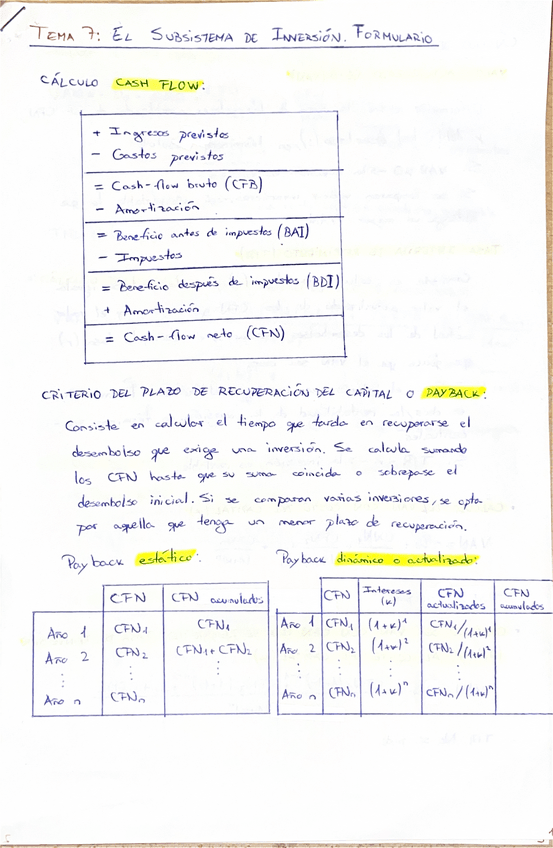 TEMA 7: EL SUBSISTEMA DE INVERSIÓN. FORMULARIO
CÁLCULO CASH FLOW:
+ Ingresos previstos
- Gastos previstos
= Cash-flow bruto (CFB)
- Amortización
= Beneficio antes de impuestos (BAI)
- Impuestos
= Beneficio después de impuestos (BDI)
+ Amortización
= Cash-flow neto (CFN)
CRITERIO DEL PLAZO DE RECUPERACIÓN DEL CAPITAL O PAYBACK:
Consiste en calcular el tiempo que tarda en recuperarse el
desembolso que exige una inversión. Se calcula sumando
los CFN hasta que su suma coincida o sobrepase el
desembolso inicial. Si se comparan varias inversiones, se opta
por aquella que tenga un menor plazo de recuperación.
Payback estático:
CFN CFN acumulados
Año 1 CFN₁ CFN₁
Año 2 CFN₂ CFN₁+CFN₂
⋮ ⋮ ⋮
Año n CFNn
Payback dinámico o actualizado:
CFN Intereses (k) CFN actualizados CFN acumulados
Año 1 CFN₁ (1+k)¹ CFN₁/(1+k)¹
Año 2 CFN₂ (1+k)² CFN₂/(1+k)²
⋮ ⋮ ⋮ ⋮
Año n CFNn (1+k)ⁿ CFNn/(1+k)ⁿ